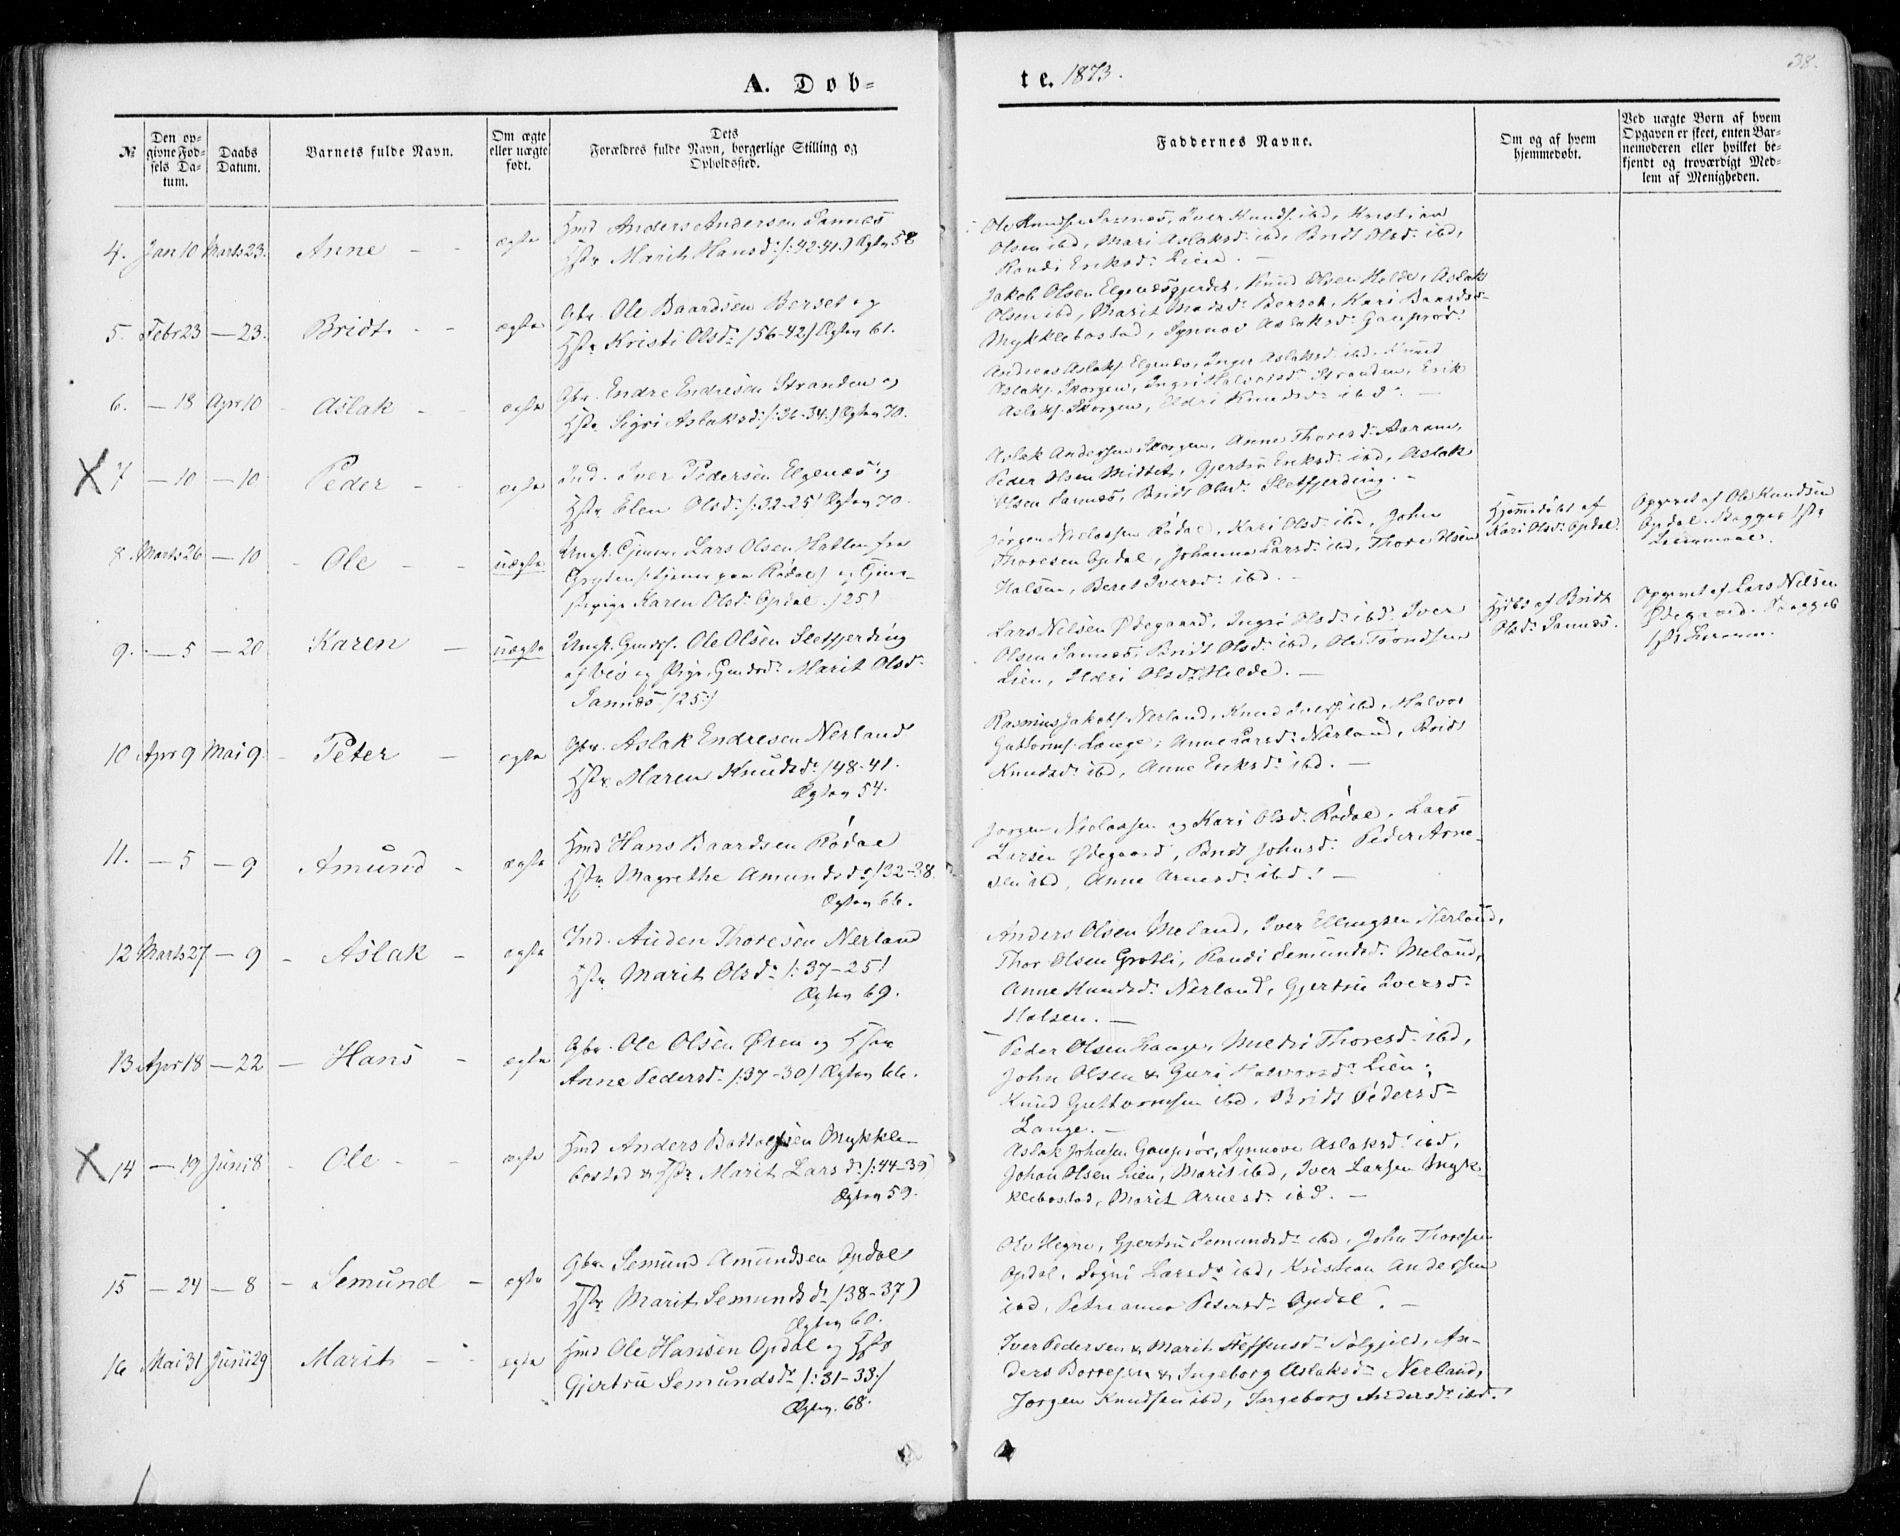 A. Døb-
te. 1873.
38.
№
Den op-
givne Fød-
sels Da-
tum.
Daabs
Datum.
Barnets fulde Navn.
Om ægte
eller uægte
født.
Dets
Forældres fulde Navn, borgerlige Stilling og
Opholdssted.
Faddernes Navne.
Om og af hvem
hjemmedøbt.
Ved uægte Børn af hvem
Opgaven er skeet, enten Bar-
nemoderen eller hvilket be-
kjendt og troværdigt Med-
lem af Menigheden.
4. Jan 10 Marts 23. Anne ægte
Hmd Anders Andersen Sannes
Hstr Marit Hansdr /:42-41.) Ægtev 58
Ole Knudsen Sannes, Iver Knuds. ibd, Kristian
Olsen ibd, Mari Aslaksdr ibd, Bridt Olsdr ibd,
Randi Eriksdr Lien.
5. Febr 23 — 23. Bridt ægte
Gbr. Ole Baardsen Berset og
Hstr Kristi Olsdr /56-42/ Ægtev 61.
Jakob Olsen Elgenæsgjerdet, Knud Olsen Helde, Aslak
Olsen ibd, Marit Madsdr Berset, Kari Baardsdr
Mykklebostad, Synnøv Aslaksdr Gauprør.
6. — 18 Apr 10 Aslak ægte
Gbr. Endre Endresen Stranden og
Hstr Sigri Aslaksdr /:36-34./ Ægtev 70.
Andreas Aslaks. Elgenæs, Inger Aslaksdr ibd, Knud
Aslaks. Skorgen, Ingri Halvorsdr Stranden, Erik
Aslaks. Skorgen, Eldri Knudsdr ibd.
X 7 — 10 — 10 Peder ægte
Ind. Iver Pedersen Elgenæs og
Hstr Elen Olsdr /:32-25/ Ægtev 70.
Aslak Andersen Skorgen, Anne Thoresdr Aaram,
Peder Olsen Mittet, Gjertru Eriksdr ibd, Aslak
Olsen Sannes, Bridt Olsdr Sletfjerding.
8. Marts 26 — 10 Ole uægte
Ungk. Tjener Lars Olsen Hatlen fra
Grytten (tjener paa Rødal) og Tjene-
stepige Karen Olsdr Opdal. /25/
Jørgen Nielsen Rødal, Kari Olsdr ibd, John
Thoresen Opdal, Johanna Larsdr ibd, Thore Olsen
Halsen, Beret Iversdr ibd.
Hjemmedøbt af
Kari Olsdr Opdal.
Opgivet af Ole Knudsen
Opdal. Begges 1ste
Leiermaal.
9. — 5 — 20 Karen uægte
Ungk. Gmds. Ole Olsen Sletfjerding
af Veø og Pige, Gmdsdr Marit Olsdr
Sannes /25/
Lars Nilsen Ødegaard, Ingri Olsdr ibd, Iver
Olsen Sannes, Bridt Olsdr ibd, Ole Trondsen
Lien, Eldri Olsdr Helde.
Hjdbt af Bridt
Olsdr Sannes.
Opgivet af Lars Nilsen
Ødegaard. Begges
1ste Leierm.
10 Apr 9 Mai 9 Peter ægte
Gbr. Aslak Endresen Nerland
Hstr Maren Knudsdr /48-41.
Ægtev 54.
Rasmus Jakobs. Nerland, Knud Ivers. ibd, Halvor
Guttorms. Lange, Anne Larsdr Nerland, Bridt
Knudsdr ibd, Anne Eriksdr ibd.
11. — 5 — 9 Amund ægte
Hmd Hans Baardsen Rødal
Hstr Magrethe Amundsdr /32-38.
Ægtev 66.
Jørgen Nielsen og Kari Olsdr Rødal, Lars
Larsen Ødegaard, Bridt Johnsdr Peder Arne-
sen ibd, Anne Arnesdr ibd.
12 Marts 27 — 9 Aslak ægte
Ind. Auden Thoresen Nerland
Hstr Marit Olsdr /:37-25/
Ægtev 69.
Anders Olsen Meland, Iver Ellingsen Nerland,
Thor Olsen Grøtli, Randi Semundsdr Meland,
Anne Knudsdr Nerland, Gjertru Iversdr
Halsen.
13 Apr 18 — 22 Hans ægte
Gbr. Ole Olsen Øren og Hstr
Anne Pedersdr /:37-30/ Ægtev 66.
Peder Olsen Lange, Mildri Thoresdr ibd,
John Olsen & Guri Halvorsdr Lien,
Knud Guttormsen ibd, Bridt Pedersdr
Lange.
X 14 — 19 Juni 8 Ole ægte
Hmd Anders Bottolfsen Mykkle-
bostad & Hstr Marit Larsdr /:44-39
Ægtev 59.
Aslak Johnsen Gauprør, Synnøve Aslaksdr ibd,
Johan Olsen Lien, Marit ibd, Iver Larsen Myk-
klebostad, Marit Arnesdr ibd.
15 — 24 — 8 Semund ægte
Gbr. Semund Amundsen Opdal
Hstr Marit Semundsdr /38-37)
Ægtev 60.
Ole Hegne, Gjertru Semundsdr ibd, John Thoresen
Opdal, Sigri Larsdr ibd, Kristian Andersen
ibd, Petrianna Petersdr Opdal.
16 Mai 31 Juni 29 Marit ægte
Hmd Ole Hansen Opdal og Hstr
Gjertru Semundsdr /:31-33/
Ægtev. 68.
Iver Pedersen & Marit Steffensdr Sølgjeld, An-
ders Børresen & Ingeborg Aslaksdr Nerland,
Jørgen Knudsen ibd, Ingeborg Andersdr ibd.